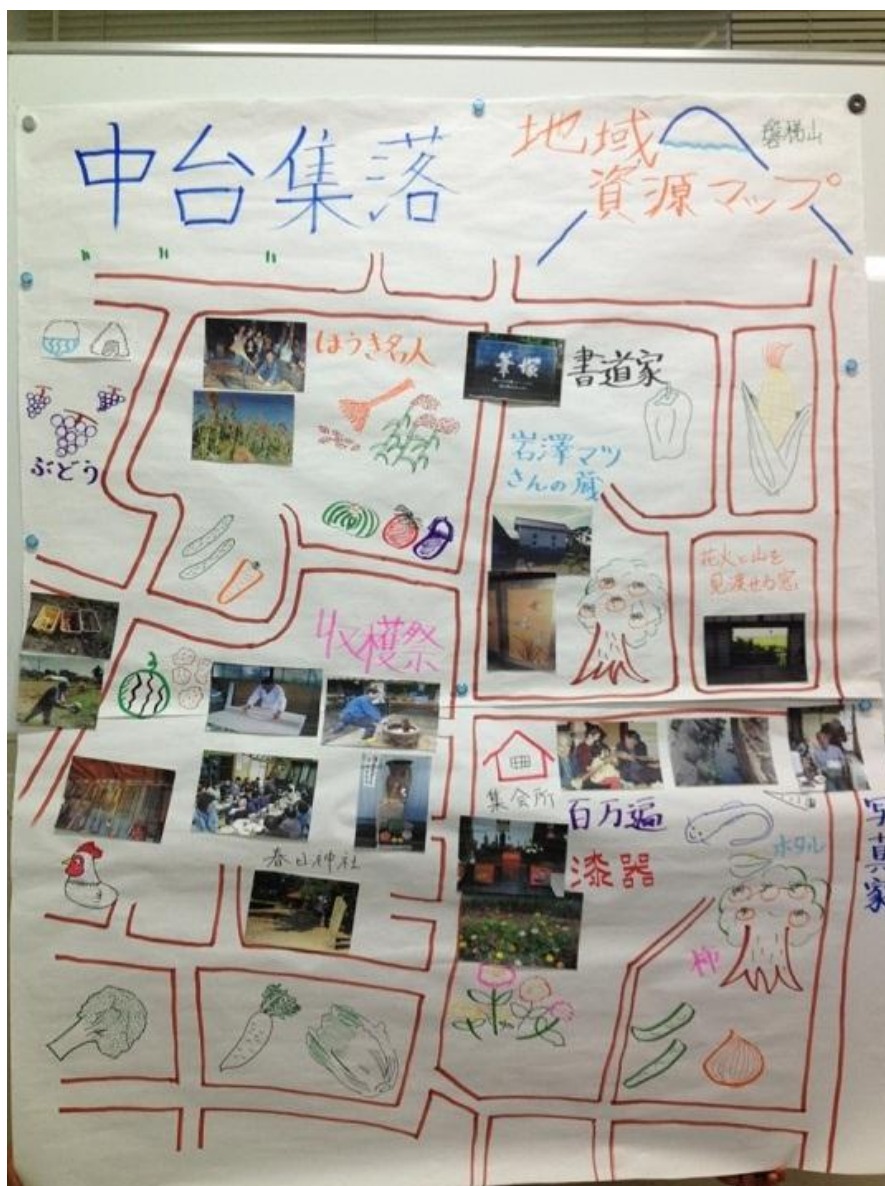 中台集落
地域
資源マップ
磐梯山
ほうき名人
筆塚
書道家
ぶどう
岩澤マツ
さんの蔵
花火と山を
見渡せる窓
収穫祭
集会所
百万遍
漆器
ホタル
写真家
春日神社
柿